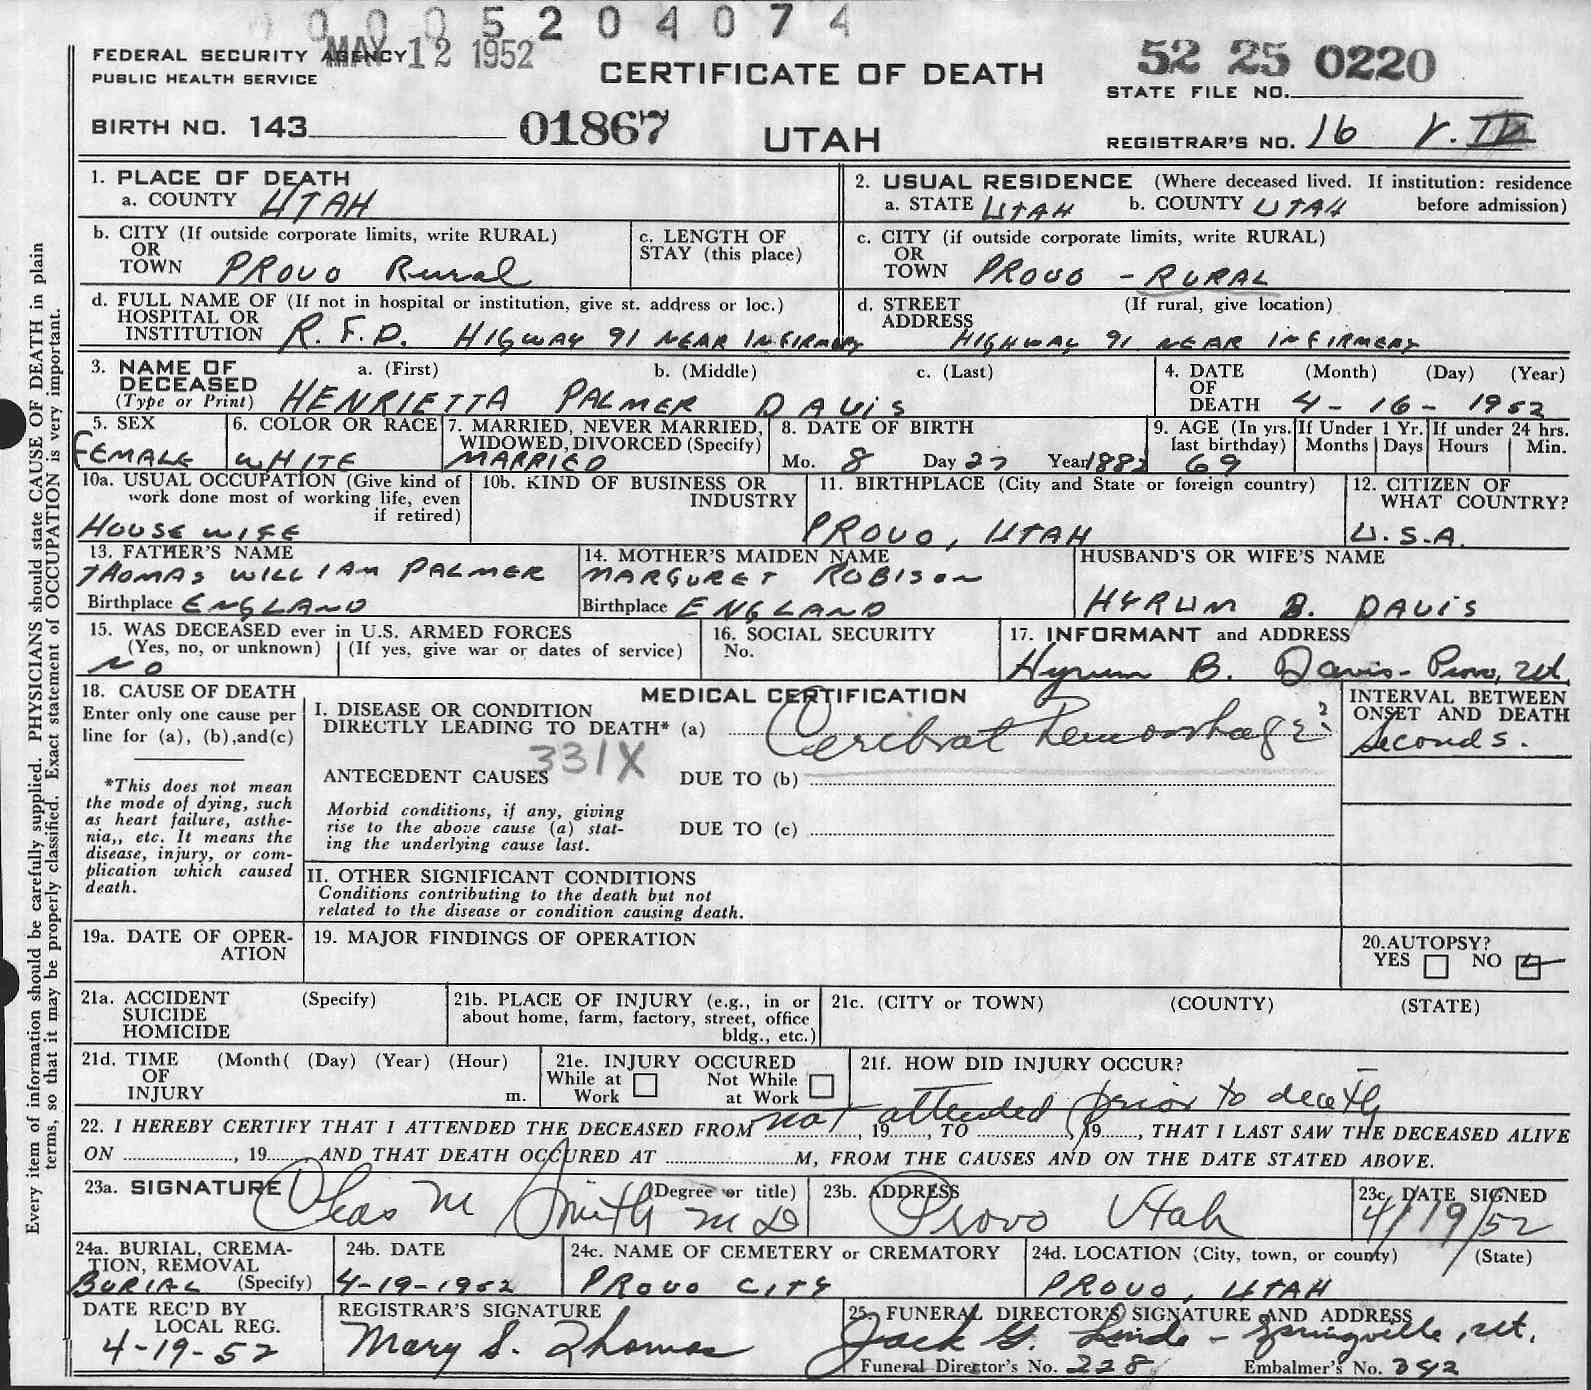 0 0 0 5 2 0 4 0 7 4
FEDERAL SECURITY AGENCY MAY 12 1952
PUBLIC HEALTH SERVICE
CERTIFICATE OF DEATH
52 25 0220
STATE FILE NO.
BIRTH NO. 143 01867
UTAH
REGISTRAR'S NO. 16
1. PLACE OF DEATH
a. COUNTY UTAH
2. USUAL RESIDENCE (Where deceased lived. If institution: residence before admission)
a. STATE UTAH b. COUNTY UTAH
b. CITY (If outside corporate limits, write RURAL)
OR
TOWN PROVO Rural
c. LENGTH OF
STAY (this place)
c. CITY (if outside corporate limits, write RURAL)
OR
TOWN PROVO - RURAL
d. FULL NAME OF (If not in hospital or institution, give st. address or loc.)
HOSPITAL OR
INSTITUTION R.F.D. HIGWAY 91 NEAR INFIRMERY
d. STREET (If rural, give location)
ADDRESS
HIGHWAY 91 NEAR INFIRMERY
3. NAME OF a. (First) b. (Middle) c. (Last)
DECEASED
(Type or Print) HENRIETTA PALMER DAVIS
4. DATE (Month) (Day) (Year)
OF
DEATH 4-16-1952
5. SEX
FEMALE
6. COLOR OR RACE
WHITE
7. MARRIED, NEVER MARRIED,
WIDOWED, DIVORCED (Specify)
MARRIED
8. DATE OF BIRTH
Mo. 8 Day 27 Year 1882
9. AGE (In yrs. last birthday) 69
If Under 1 Yr.
Months Days
If under 24 hrs.
Hours Min.
10a. USUAL OCCUPATION (Give kind of
work done most of working life, even
if retired)
HOUSE WIFE
10b. KIND OF BUSINESS OR
INDUSTRY
11. BIRTHPLACE (City and State or foreign country)
PROVO, UTAH
12. CITIZEN OF
WHAT COUNTRY?
U.S.A.
13. FATHER'S NAME
THOMAS WILLIAM PALMER
Birthplace ENGLAND
14. MOTHER'S MAIDEN NAME
MARGURET ROBISON
Birthplace ENGLAND
HUSBAND'S OR WIFE'S NAME
HYRUM B. DAVIS
15. WAS DECEASED ever in U.S. ARMED FORCES
(Yes, no, or unknown) (If yes, give war or dates of service)
NO
16. SOCIAL SECURITY
No.
17. INFORMANT and ADDRESS
Hyrum B. Davis - Provo, Ut.
18. CAUSE OF DEATH
Enter only one cause per
line for (a), (b),and(c)
*This does not mean
the mode of dying, such
as heart failure, asthe-
nia,, etc. It means the
disease, injury, or com-
plication which caused
death.
MEDICAL CERTIFICATION
I. DISEASE OR CONDITION
DIRECTLY LEADING TO DEATH* (a) Cerebral Hemorrhage
331X
ANTECEDENT CAUSES DUE TO (b)
Morbid conditions, if any, giving
rise to the above cause (a) stat-
ing the underlying cause last.
DUE TO (c)
INTERVAL BETWEEN
ONSET AND DEATH
seconds.
II. OTHER SIGNIFICANT CONDITIONS
Conditions contributing to the death but not
related to the disease or condition causing death.
19a. DATE OF OPER-
ATION
19. MAJOR FINDINGS OF OPERATION
20.AUTOPSY?
YES NO
21a. ACCIDENT (Specify)
SUICIDE
HOMICIDE
21b. PLACE OF INJURY (e.g., in or
about home, farm, factory, street, office
bldg., etc.)
21c. (CITY or TOWN) (COUNTY) (STATE)
21d. TIME (Month( (Day) (Year) (Hour)
OF
INJURY m.
21e. INJURY OCCURED
While at Work Not While at Work
21f. HOW DID INJURY OCCUR?
not attended prior to death
22. I HEREBY CERTIFY THAT I ATTENDED THE DECEASED FROM , 19 , TO , 19 , THAT I LAST SAW THE DECEASED ALIVE
ON , 19 AND THAT DEATH OCCURED AT M, FROM THE CAUSES AND ON THE DATE STATED ABOVE.
23a. SIGNATURE (Degree or title)
Chas M Smith MD
23b. ADDRESS
Provo Utah
23c. DATE SIGNED
4/19/52
24a. BURIAL, CREMA-
TION, REMOVAL
(Specify) BURIAL
24b. DATE
4-19-1952
24c. NAME OF CEMETERY or CREMATORY
PROVO CITY
24d. LOCATION (City, town, or county) (State)
PROVO, UTAH
DATE REC'D BY
LOCAL REG.
4-19-52
REGISTRAR'S SIGNATURE
Mary S. Thomas
25. FUNERAL DIRECTOR'S SIGNATURE AND ADDRESS
Jack G. Linde - Springville, Ut.
Funeral Director's No. 228 Embalmer's No. 342
Every item of information should be carefully supplied. PHYSICIANS should state CAUSE OF DEATH in plain
terms, so that it may be properly classified. Exact statement of OCCUPATION is very important.